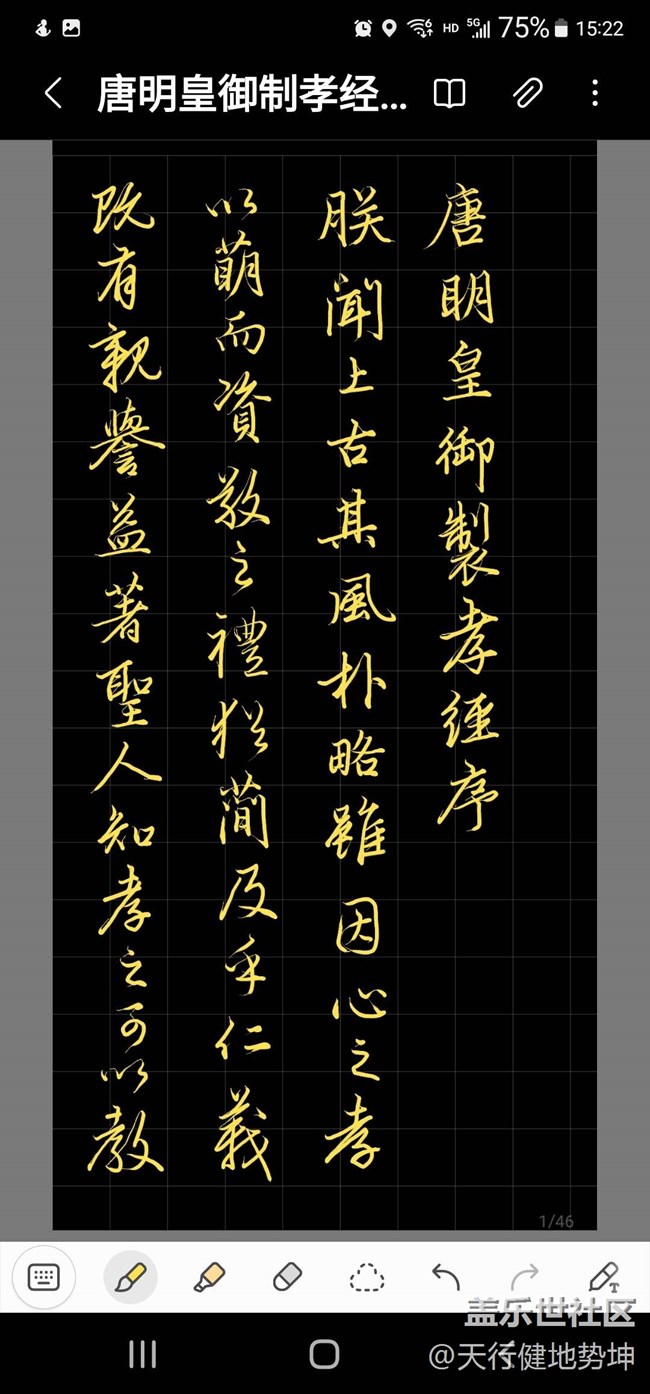 HD 5G 75% 15:22
唐明皇御制孝经...
唐明皇御製孝經序
朕聞上古其風朴略雖因心之孝
以萌而資敬之禮猶簡及乎仁義
既有親譽益著聖人知孝之可以教
1/46
盖乐世社区
@天行健地势坤